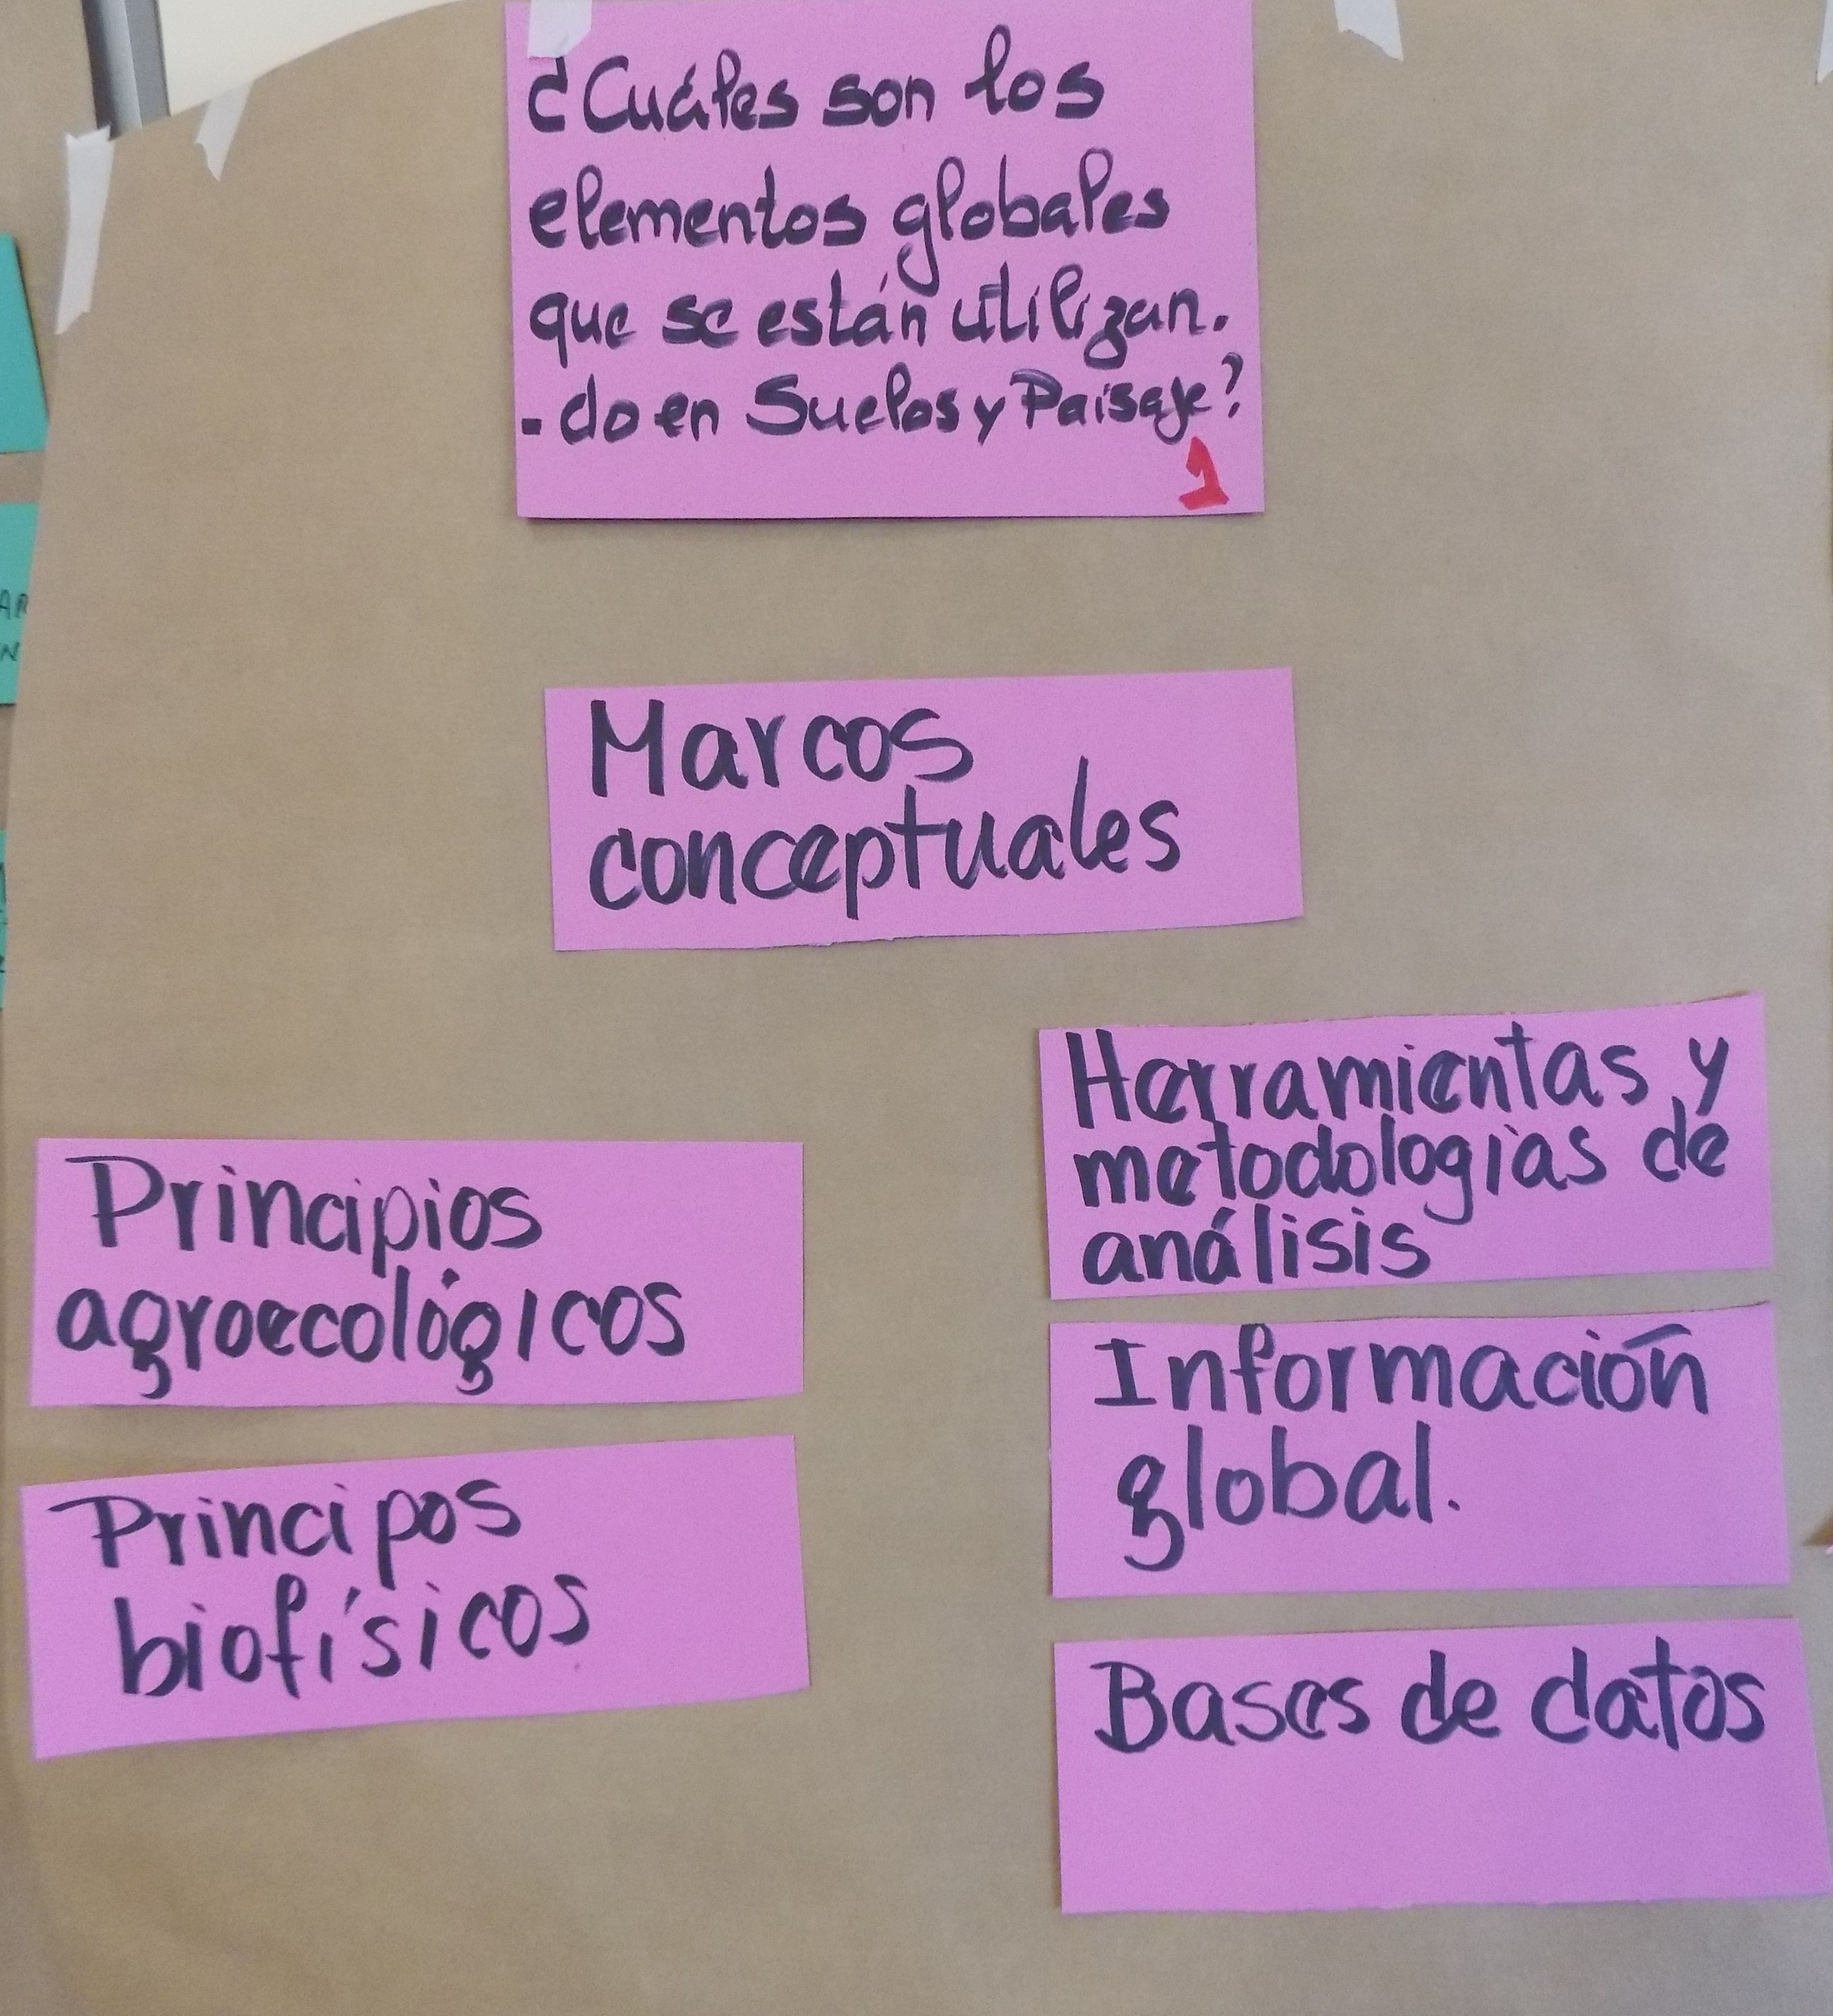 ¿Cuáles son los
elementos globales
que se están utilizan.
- do en Suelos y Paisaje?
1
Marcos
conceptuales
Principios
agroecológicos
Principos
biofísicos
Herramientas y
metodologías de
análisis
Información
global.
Bases de datos